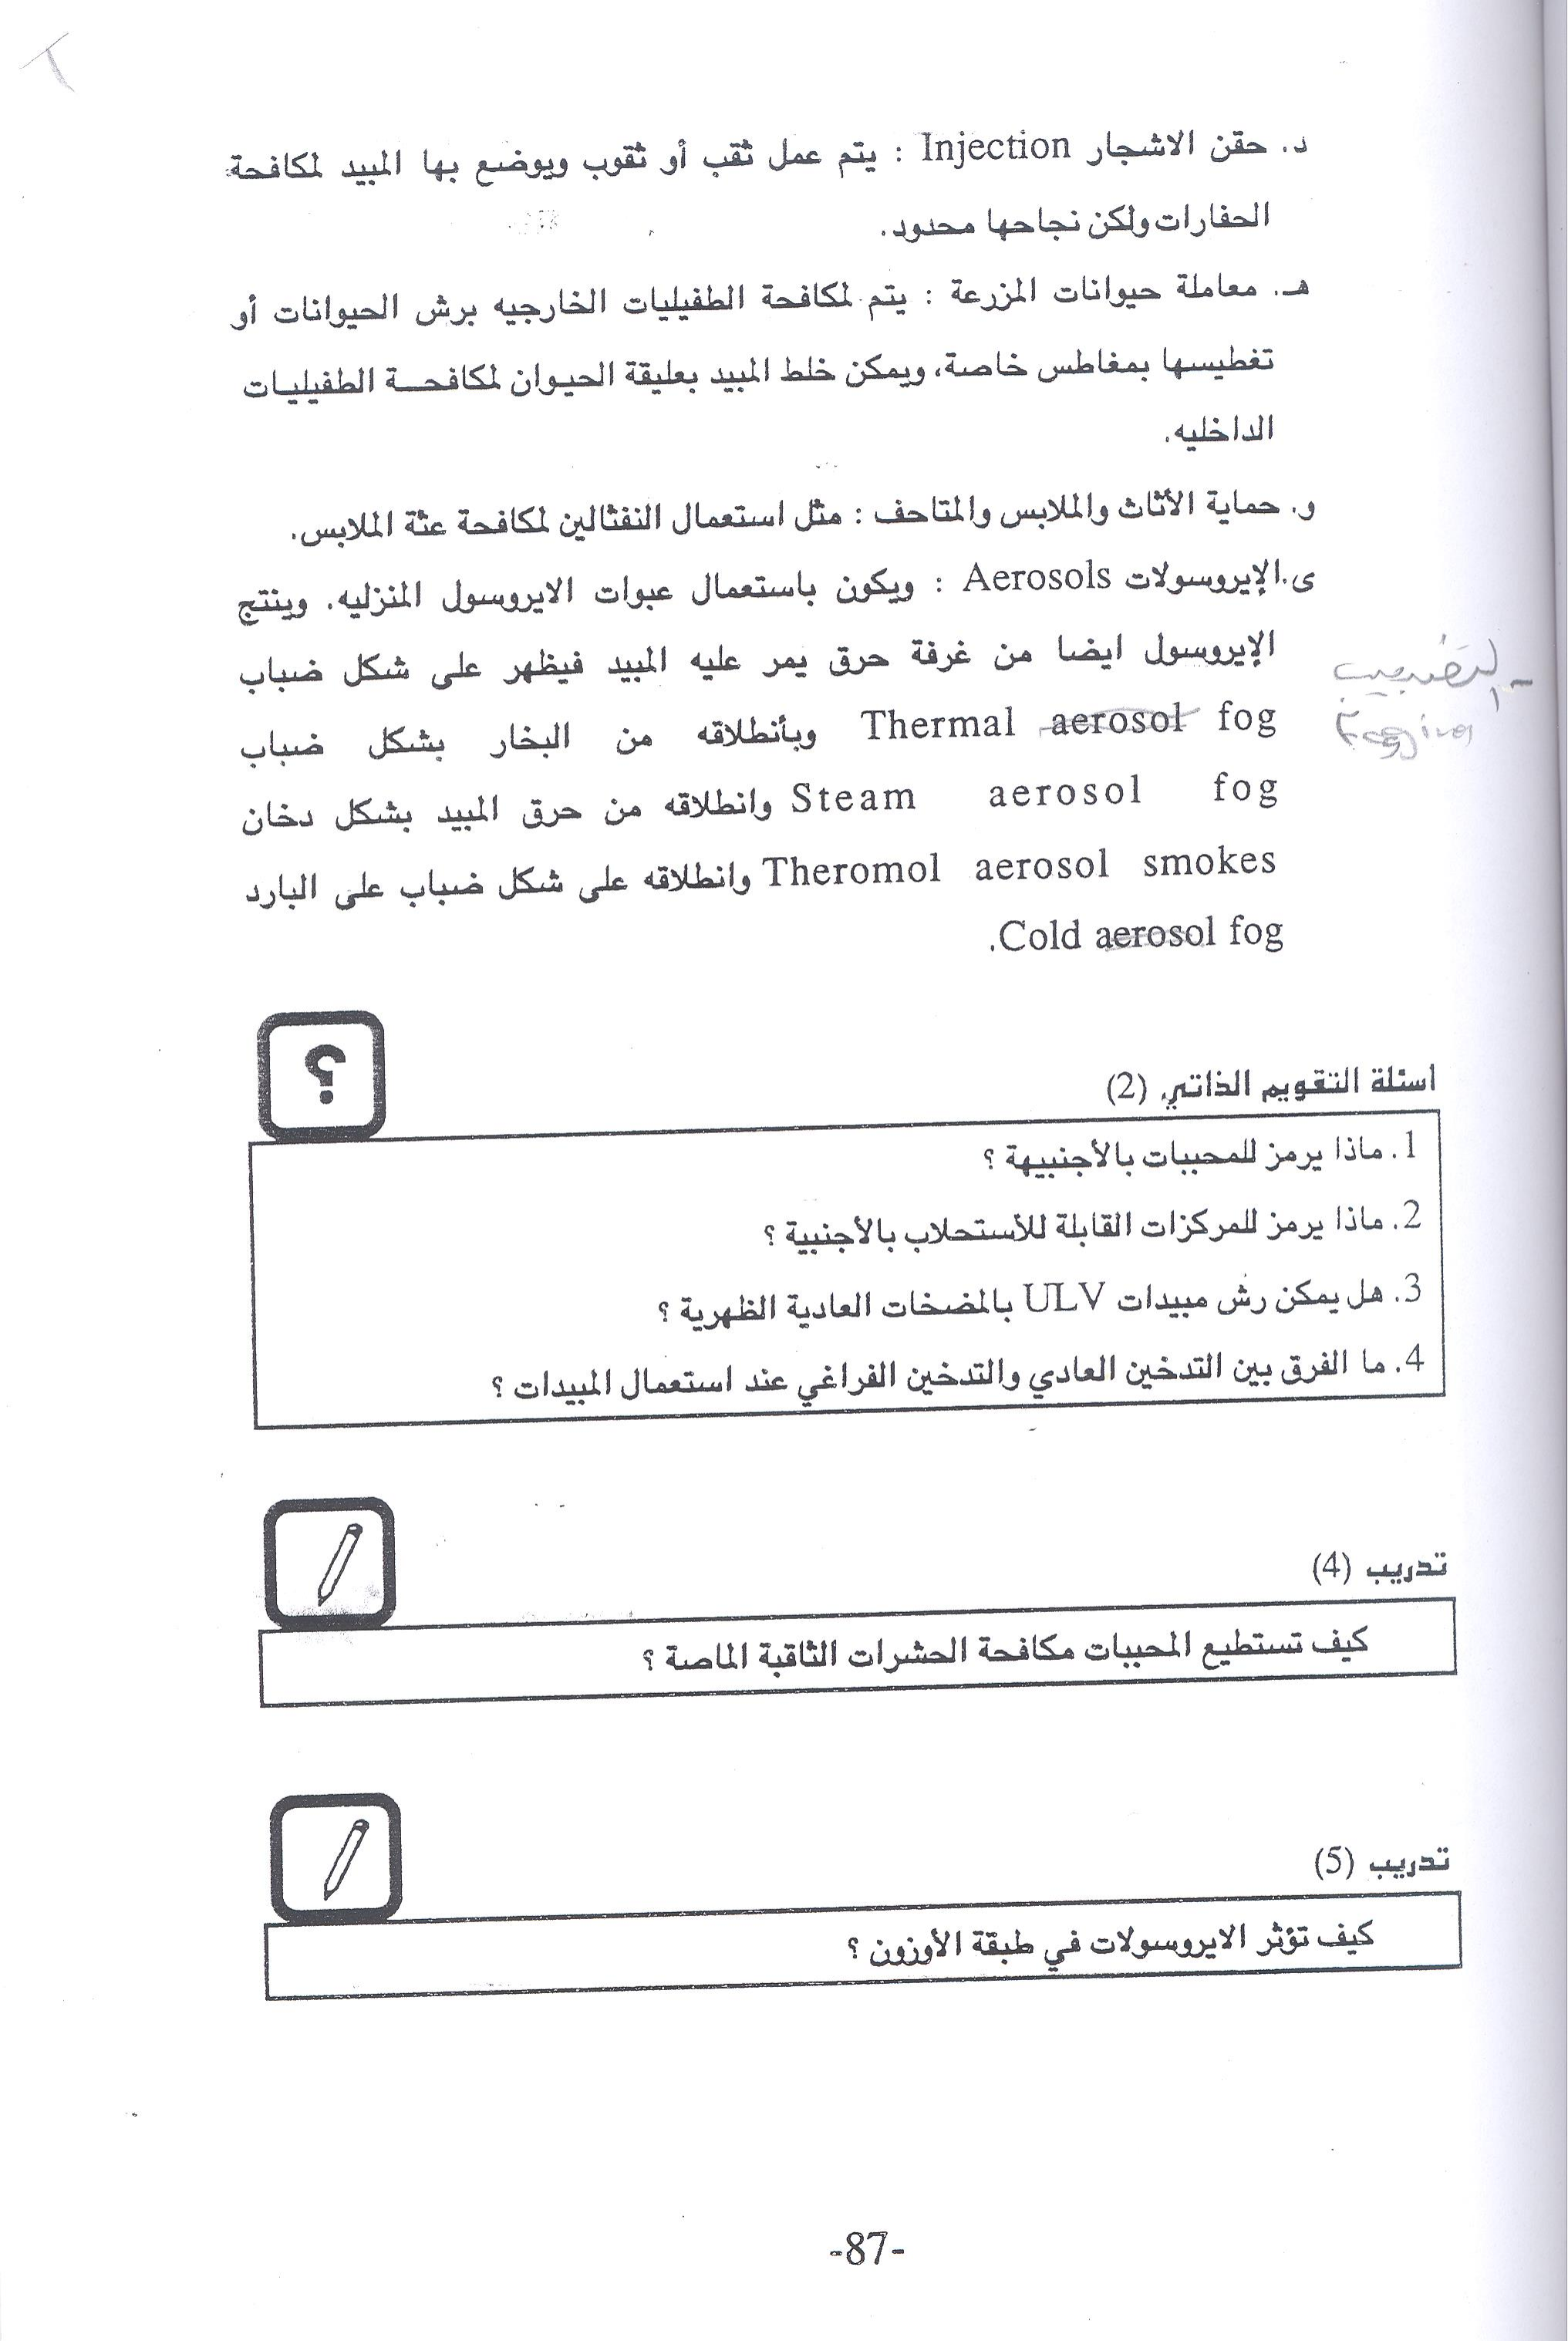 د. حقن الاشجار Injection : يتم عمل ثقب أو ثقوب ويوضع بها المبيد لمكافحة
الحفارات ولكن نجاحها محدود.
هـ. معاملة حيوانات المزرعة : يتم لمكافحة الطفيليات الخارجيه برش الحيوانات أو
تغطيسها بمغاطس خاصة، ويمكن خلط المبيد بعليقة الحيوان لمكافحة الطفيليات
الداخليه.
و. حماية الأثاث والملابس والمتاحف : مثل استعمال النفثالين لمكافحة عثة الملابس.
ى. الإيروسولات Aerosols : ويكون باستعمال عبوات الايروسول المنزليه. وينتج
الإيروسول ايضا من غرفة حرق يمر عليه المبيد فيظهر على شكل ضباب
Thermal aerosol fog وبأنطلاقه من البخار بشكل ضباب
Steam aerosol fog وانطلاقه من حرق المبيد بشكل دخان
Theromol aerosol smokes وانطلاقه على شكل ضباب على البارد
Cold aerosol fog.
التضبيب
Fogging
اسئلة التقويم الذاتي (2)
؟
1. ماذا يرمز للمحببات بالأجنبيهة ؟
2. ماذا يرمز للمركزات القابلة للأستحلاب بالأجنبية ؟
3. هل يمكن رش مبيدات ULV بالمضخات العادية الظهرية ؟
4. ما الفرق بين التدخين العادي والتدخين الفراغي عند استعمال المبيدات ؟
تدريب (4)
كيف تستطيع المحببات مكافحة الحشرات الثاقبة الماصة ؟
تدريب (5)
كيف تؤثر الايروسولات في طبقة الأوزون ؟
-87-